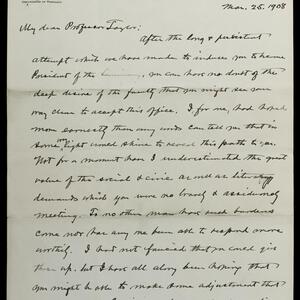 Mar. 25. 1908
My dear Professor Taylor:
After the long & persistent
attempt which we have made to induce you to become
President of the you can have no doubt of the
deep desire of the faculty that you might see your
way clear to accept this office. I, for me, had hoped
more earnestly than any words can tell you that in
some light would shine to reveal this path to you.
Not for a moment have I underestimated the great
value of the social & civic as well as literary
demands which you were so bravely & assiduously
meeting. To no other man have such burdens
come nor has any one been able to respond more
worthily. I had not fancied that you could give
them up, but I have all along been hoping that
you might be able to make some adjustment that